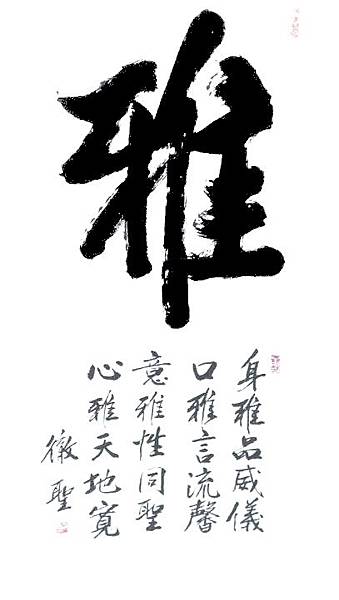 雅
身雅品威儀
口雅言流馨
意雅性同聖
心雅天地寬
徵聖